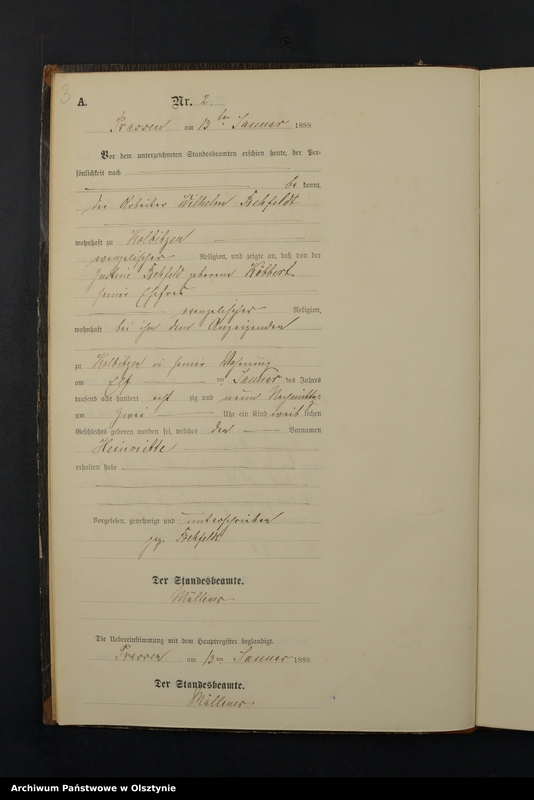 3
A.
Nr. 2
Prassen am 13ten Januar 1889.
Vor dem unterzeichneten Standesbeamten erschien heute, der Per-
sönlichkeit nach
be kannt,
der Arbeiter Wilhelm Rehfeldt
wohnhaft zu Kolbitzen
evangelischer Religion, und zeigte an, daß von der
Justine Rehfeld geborene Köbbert
seiner Ehefrau
evangelischer Religion,
wohnhaft bei ihm dem Anzeigenden
zu Kolbitzen in seiner Wohnung
am Elf ten Januar des Jahres
tausend acht hundert acht zig und neun Nachmittags
um zwei Uhr ein Kind weib lichen
Geschlechts geboren worden sei, welches den Vornamen
Heinriette
erhalten habe
Vorgelesen, genehmigt und unterschrieben
gez. Rehfeldt
Der Standesbeamte.
Die Uebereinstimmung mit dem Hauptregister beglaubigt.
Prassen am 13 ten Januar 1889.
Der Standesbeamte.
Archiwum Państwowe w Olsztynie